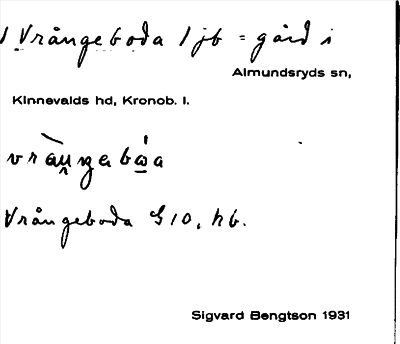 Vrångeboda 1 jb = gård i
Almundsryds sn,
Kinnevalds hd, Kronob. l.
Vrångeboda G10, hb.
Sigvard Bengtson 1931